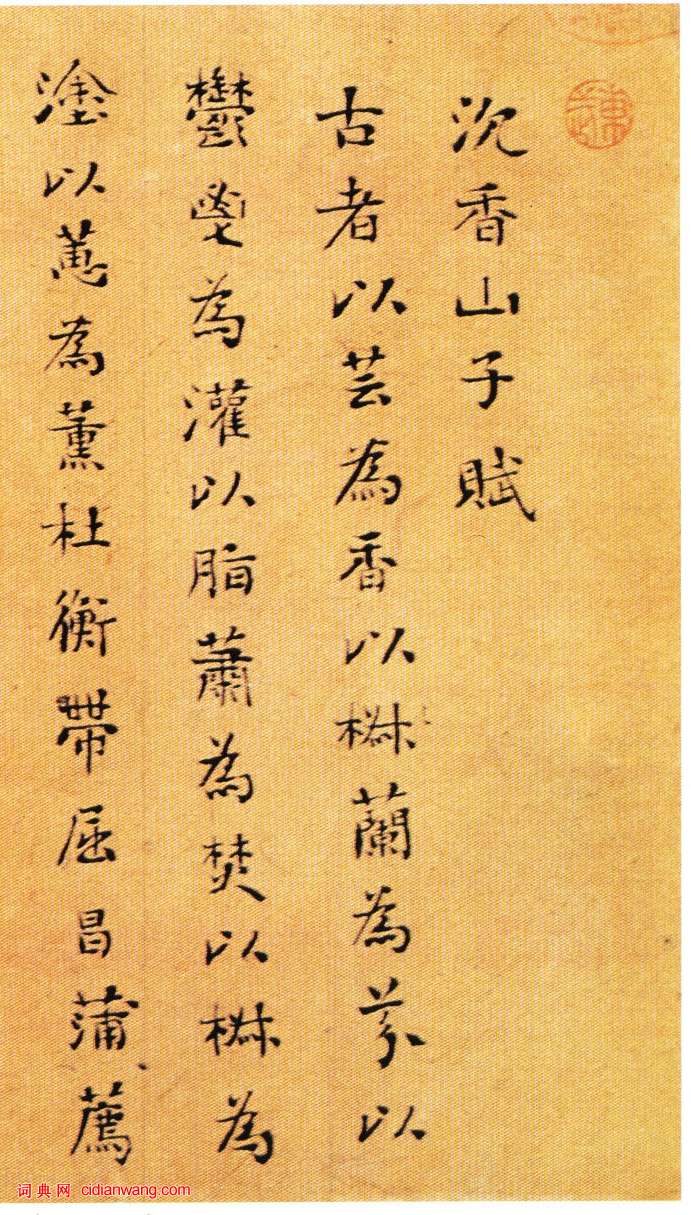 沉香山子賦
古者以芸為香以椒蘭為芬以
鬱鬯為灌以脂蕭為焚以椒為
塗以蕙為薰杜衡帶屈昌蒲薦
词典网 cidianwang.com